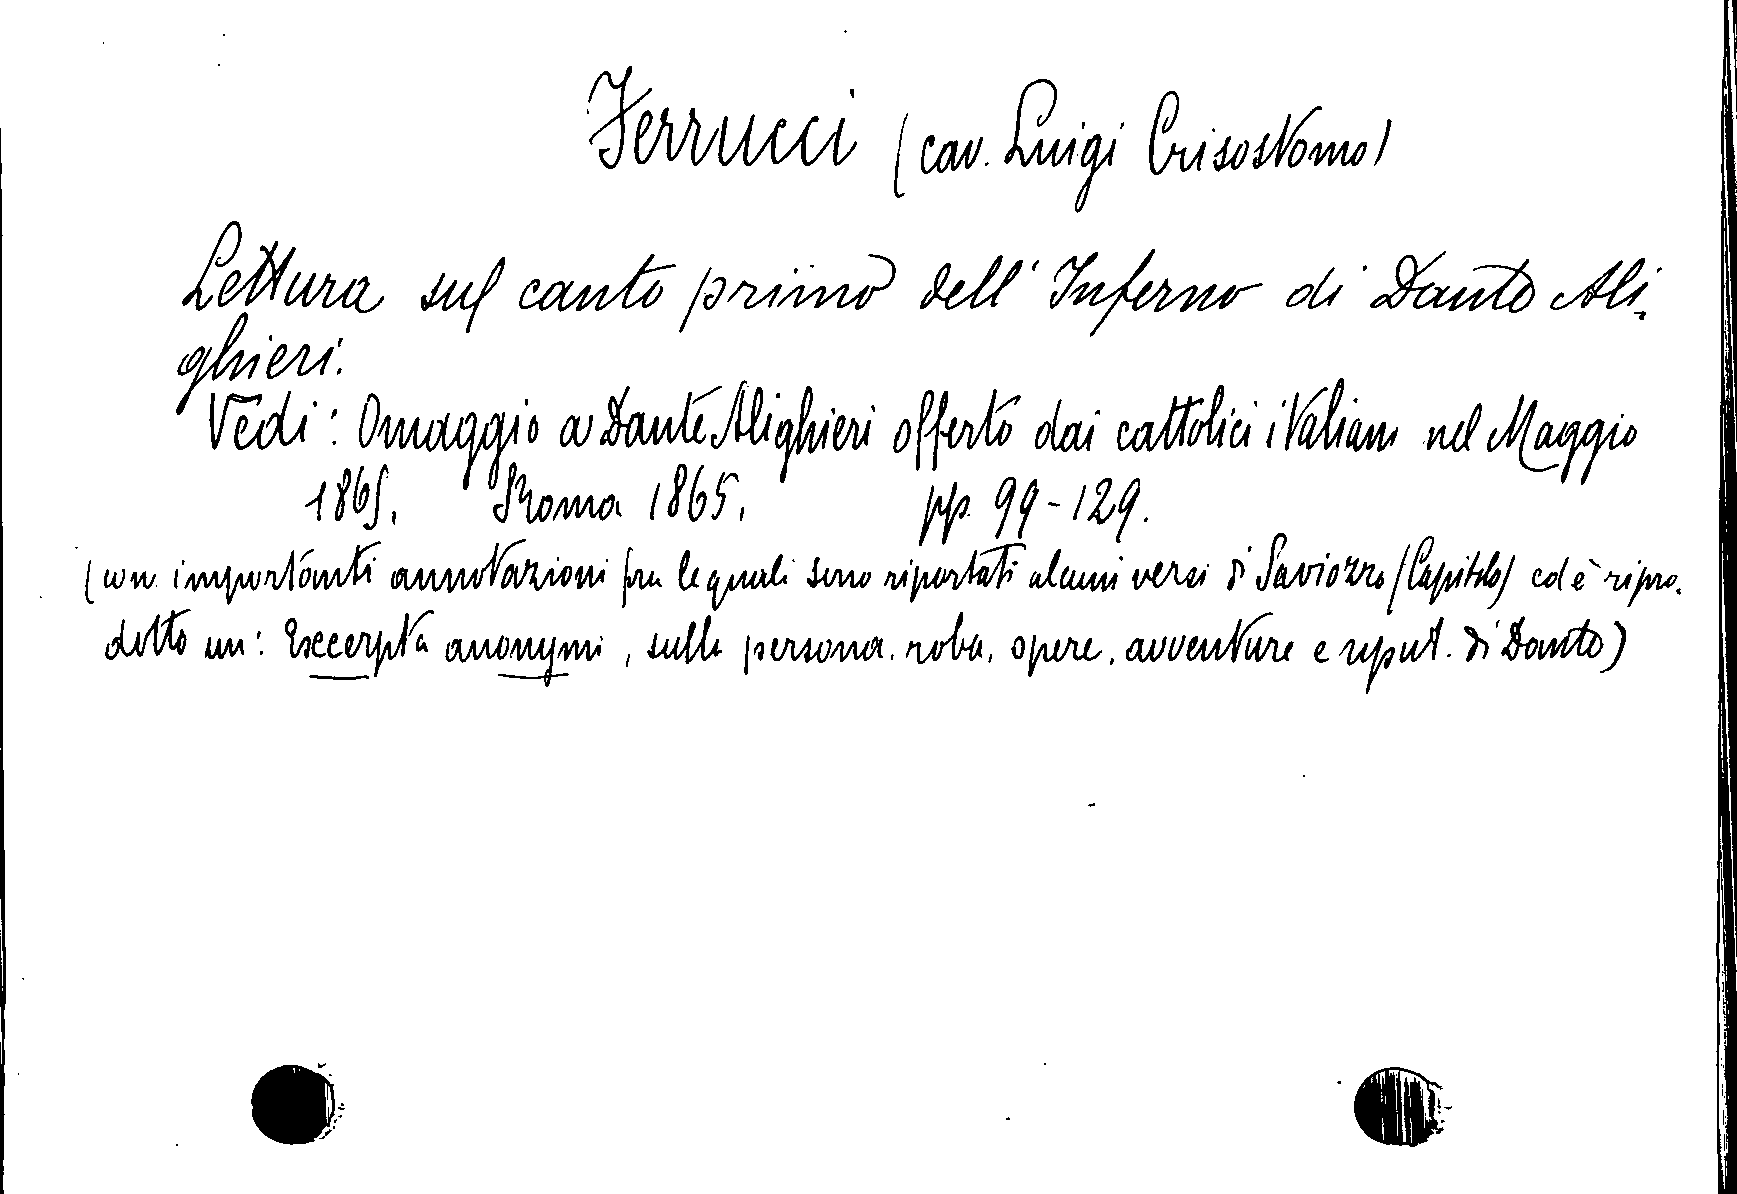 Ferrucci (cav. Luigi Crisostomo)
Lettura sul canto primo dell' Inferno di Dante Ali-
ghieri.
Vedi: Omaggio a Dante Alighieri offerto dai cattolici italiani nel Maggio
1865. Roma 1865. pp. 99-129.
(con importanti annotazioni fra le quali sono riportati alcuni versi di Saviozzo (Capitolo) ed è ripro-
dotto un: Excerpta anonymi, sulla persona, roba, opere, avventure e reput. di Dante)